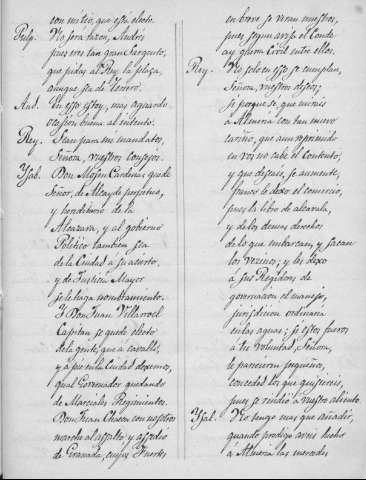 con mi tio, que esta electo.
Pulp. No fora razon, Andrés
pues eres tan gran Sargento,
que pidas al Rey la plaza,
aunque sea de
And. En esso estoy, mas aguardo
ocasion buena al intento.
Rey. Sean para mi mandatos,
Señora, vuestros consejos.
Ysab. Don Mosen Cardenas quede
Señor, de Alcayde perpetuo,
y heredero de la
Alcazava, y al gobierno
Politico tambien sea
de la Ciudad a su acierto,
y de Justicia Mayor
se le haga nombramiento.
Y Don Juan Villarroel
Capitan se quede electo
de la gente, que a cavallo,
y à pie en la Ciudad dexemos,
qual Governador quedando
de Marciales Regimientos.
Don Juan Chacon con nosotros
marche al assalto, y assedio
de Granada, cuyos Fuertes
en breve se veran nuestros,
pues segun avisa el Conde
ay guerra Civil entre ellos.
Rey. No solo en esso se cumplan,
Señora, vuestros deseos;
se porque se, que mirais
à Almeria con tan nuevo
cariño, que aun reprimido
en vos no cabe el contento;
y que deseais, se aumente,
franco le dexo el comercio,
pues la libro de alcavala,
y de los demas derechos
de lo que embarcan, y sacan
los vezinos; y les dexo
à sus Regidores de
governacion el manejo,
jurisdicion ordinaria
en las aguas; si estos fueros
à tu voluntad, Señora,
le parecieron pequeños,
conceded los que quisiereis,
pues se rendiò a vuestro aliento.
Ysab. No tengo mas que añadir,
quando prodigo aveis hecho
à Almeria las mercedes